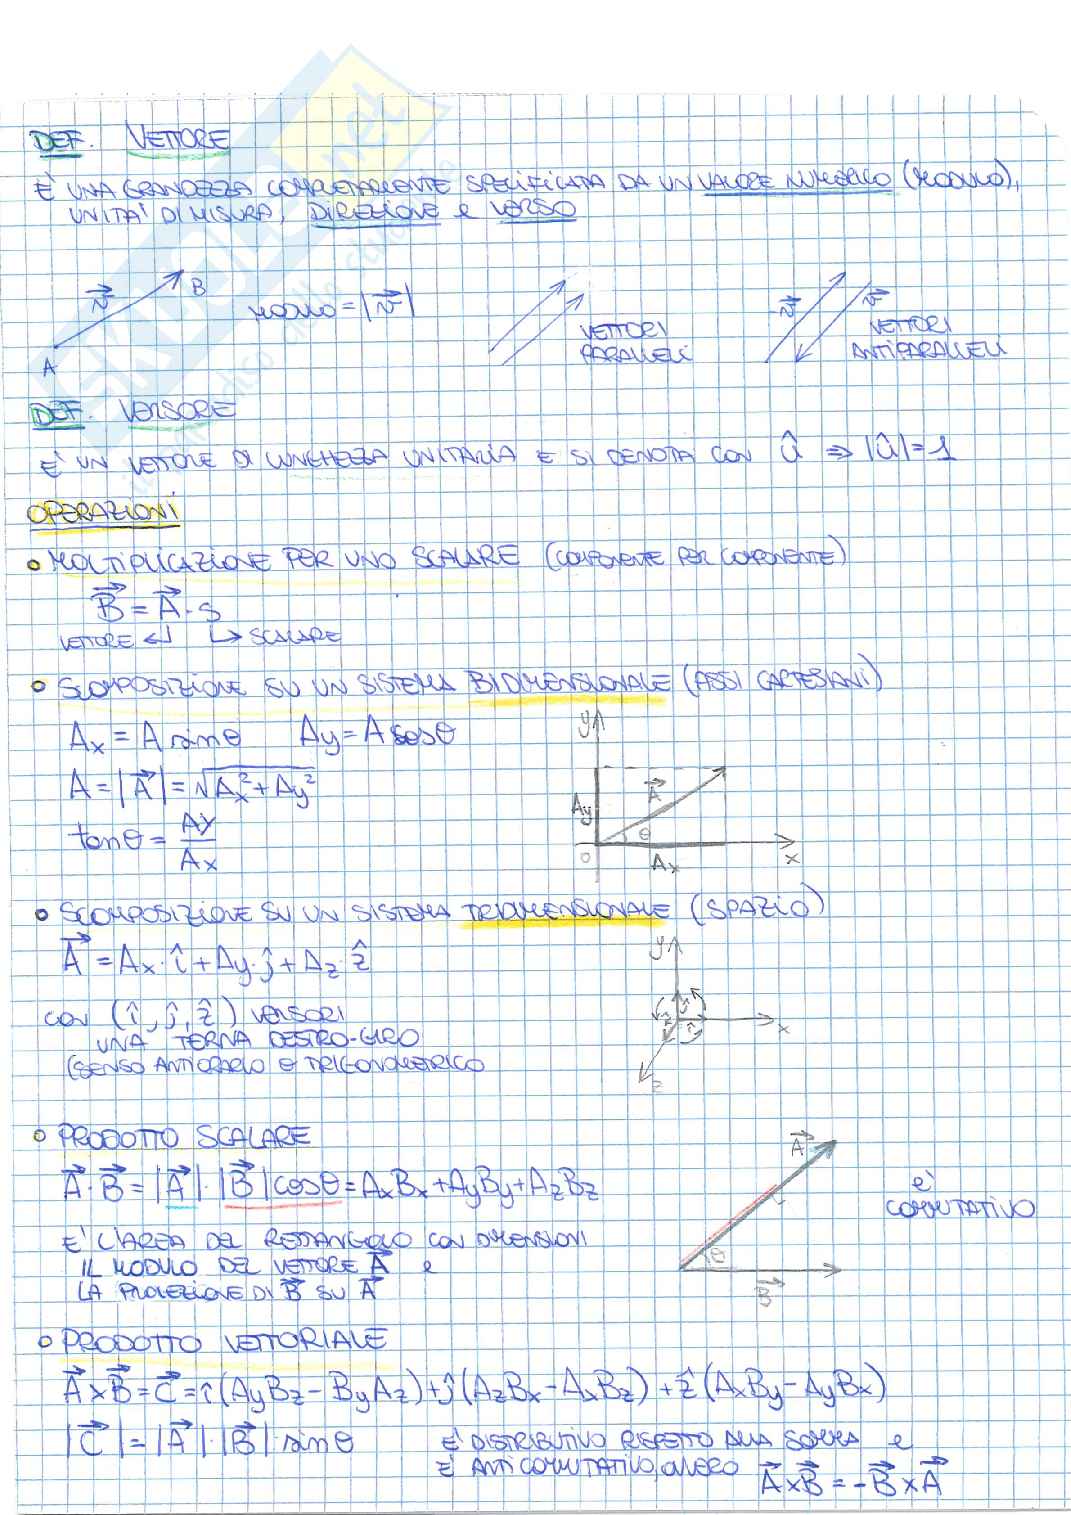 DEF. VETTORE
E' UNA GRANDEZZA COMPLETAMENTE SPECIFICATA DA UN VALORE NUMERICO (MODULO),
UNITA' DI MISURA, DIREZIONE e VERSO
A
v⃗
B
MODULO = |v⃗|
VETTORI
PARALLELI
v⃗
v⃗
VETTORI
ANTIPARALLELI
DEF. VERSORE
E' UN VETTORE DI LUNGHEZZA UNITARIA E SI DENOTA CON û ⇒ |û| = 1
OPERAZIONI
• MOLTIPLICAZIONE PER UNO SCALARE (COMPONENTE PER COMPONENTE)
B⃗ = A⃗ · s
VETTORE ↵ ↳ SCALARE
• SCOMPOSIZIONE SU UN SISTEMA BIDIMENSIONALE (ASSI CARTESIANI)
Ax = A sinθ Ay = A cosθ
A = |A⃗| = √Ax² + Ay²
tanθ = Ay / Ax
y
A⃗
Ay
θ
O
Ax
x
• SCOMPOSIZIONE SU UN SISTEMA TRIDIMENSIONALE (SPAZIO)
A⃗ = Ax · î + Ay · ĵ + Az · ẑ
CON (î, ĵ, ẑ) VERSORI
UNA TERNA DESTRO-GIRO
(SENSO ANTIORARIO O TRIGONOMETRICO
y
x
z
• PRODOTTO SCALARE
A⃗ · B⃗ = |A⃗| · |B⃗| cosθ = AxBx + AyBy + AzBz
E' L'AREA DEL RETTANGOLO CON DIMENSIONI
IL MODULO DEL VETTORE A⃗ e
LA PROIEZIONE DI B⃗ SU A⃗
A⃗
θ
B⃗
e'
COMMUTATIVO
• PRODOTTO VETTORIALE
A⃗ × B⃗ = C⃗ = î (AyBz - ByAz) + ĵ (AzBx - AxBz) + ẑ (AxBy - AyBx)
|C⃗| = |A⃗| · |B⃗| · sinθ
E' DISTRIBUTIVO RISPETTO ALLA SOMMA e
E' ANTICOMMUTATIVO, OVVERO A⃗ × B⃗ = - B⃗ × A⃗